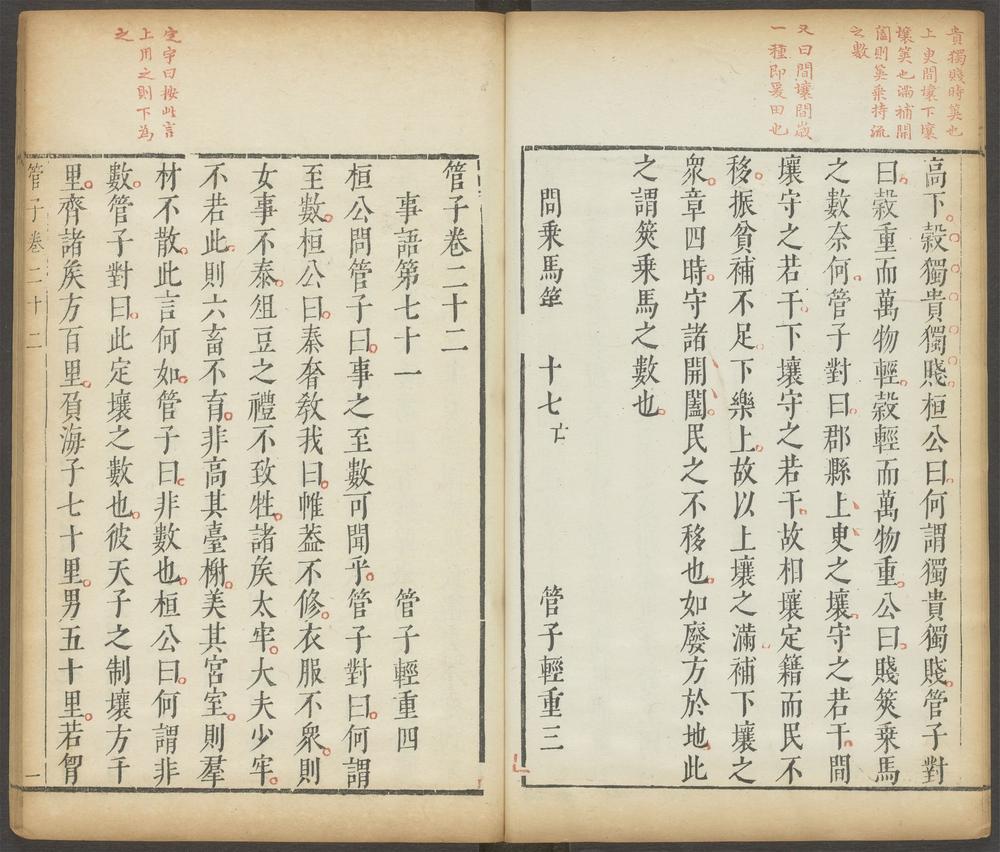 貴獨賤時筴也
上臾間壤下壤
壤筴也滿補開
闔則筴乗持流
之數
又曰間壤間歲
一種即爰田也
高下穀獨貴獨賤桓公曰何謂獨貴獨賤管子對
曰穀重而萬物輕穀輕而萬物重公曰賤筴乗馬
之數奈何管子對曰郡縣上臾之壤守之若干間
壤守之若干下壤守之若干故相壤定籍而民不
移振貧補不足下樂上故以上壤之滿補下壤之
衆章四時守諸開闔民之不移也如廢方於地此
之謂筴乗馬之數也
問乗馬第 十七亡 管子輕重三
定宇曰按此言
上用之則下為
之
管子卷二十二
事語第七十一 管子輕重四
桓公問管子曰事之至數可聞乎管子對曰何謂
至數桓公曰秦奢敎我曰帷蓋不修衣服不衆則
女事不泰俎豆之禮不致牲諸矦太牢大夫少牢
不若此則六畜不育非高其臺榭美其宮室則羣
材不散此言何如管子曰非數也桓公曰何謂非
數管子對曰此定壤之數也彼天子之制壤方千
里齊諸矦方百里負海子七十里男五十里若胷
管子卷二十二 一